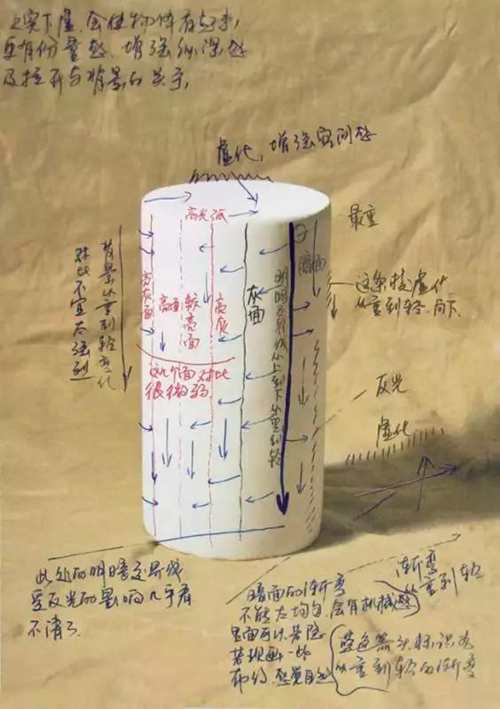 上实下虚,会使物体有与
更有份量感,增强纵深感
及拉开与背景的关系,
虚化,增强空间感
高光弧
最重
背景从重到轻变化
对比不宜太强烈
亮灰面
高面
较亮面
亮灰
灰面
明暗交界线从上到下从重到轻
暗面
这条线虚化
从重到轻.向下
这几个面对比
很微弱
反光
虚化
渐变
从重到轻
此处的明暗交界线
受反光的影响几乎看
不清了
暗面的渐变
不能太均匀,会有机械感
里面可以
若现画一些
布纹,感觉自然
蓝色箭头标识为
从重到轻的渐变